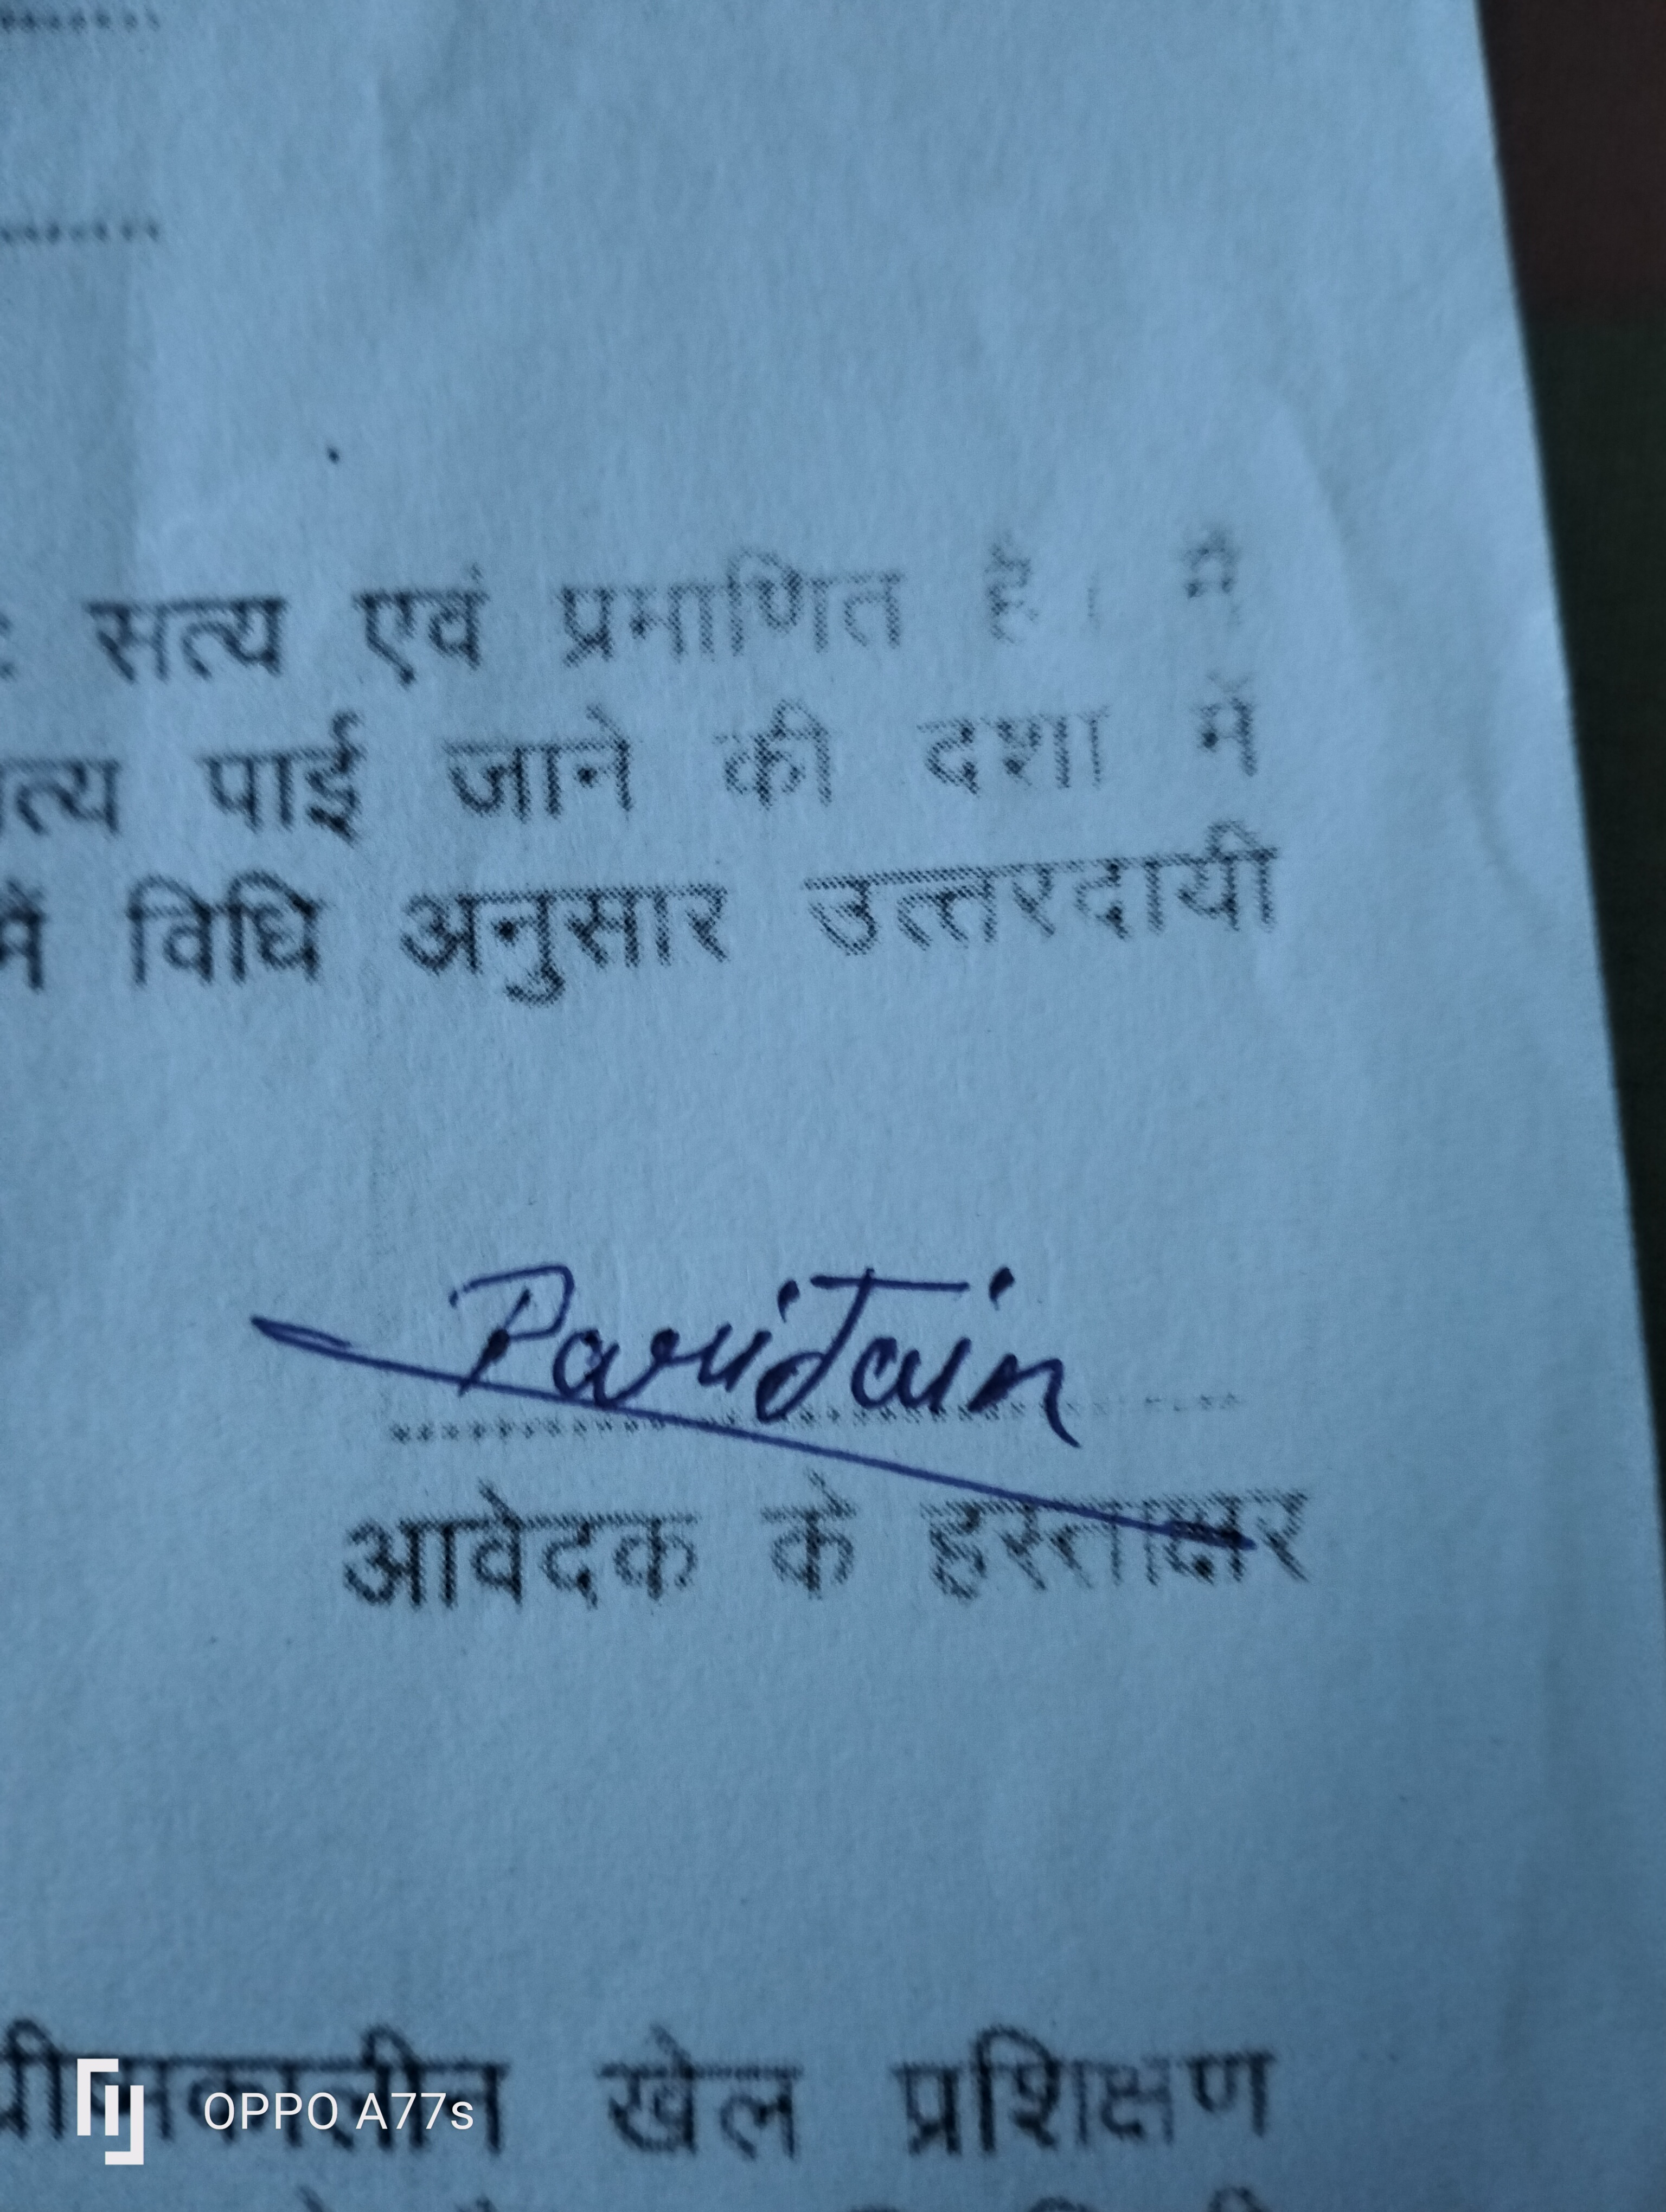 सत्य एवं प्रमाणित है। मैं
पाई जाने की दशा में
में विधि अनुसार उत्तरदायी
Pari Jain
आवेदक के हस्ताक्षर
खेल प्रशिक्षण
OPPO A77s